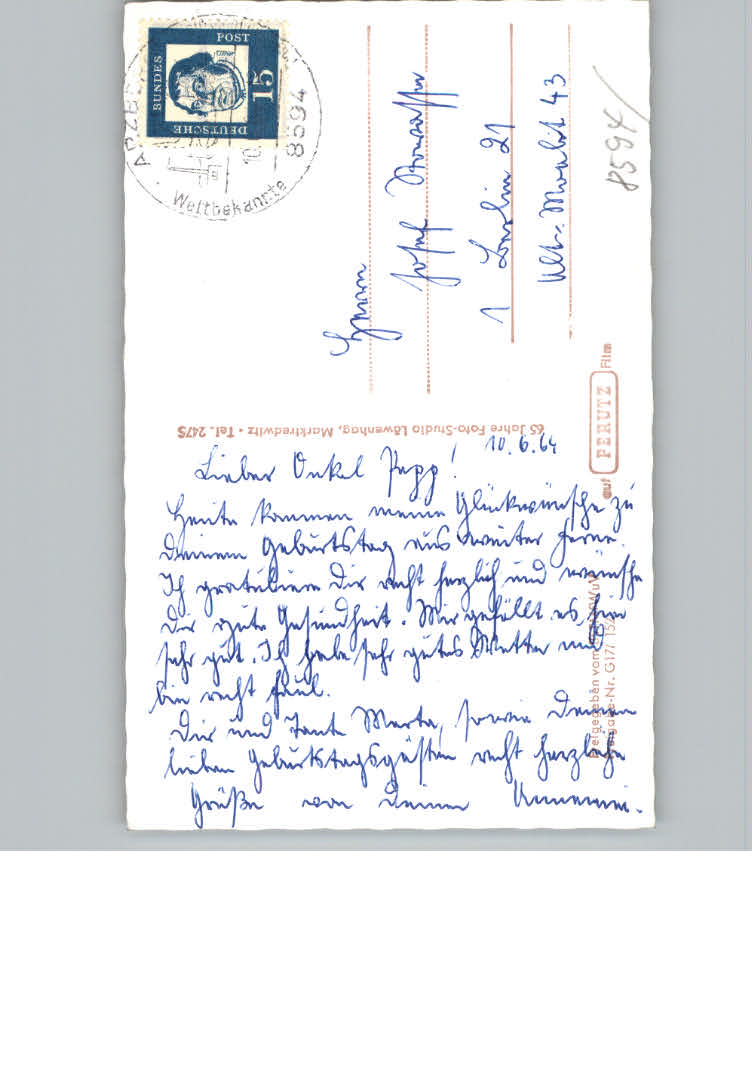 DEUTSCHE
BUNDES
POST
15
ARZBE
Weltbekannte
8594
10.
Herrn
Josef
1 Berlin 21
Alt-Moabit 43
8594
65 Jahre Foto-Studio Löwenhag, Marktredwitz • Tel. 2475
auf PERUTZ Film
Freigegeben vom
Freigabe-Nr. G17/
10.6.64
Lieber Onkel Pepp!
Heute kommen meine Glückwünsche zu
Deinem Geburtstag aus weiter Ferne.
Ich gratuliere Dir recht herzlich und wünsche
Dir gute Gesundheit. Mir gefällt es hier
sehr gut. Ich habe sehr gutes Wetter und
bin recht faul.
Dir und Tante Marta, sowie Deinen
lieben Geburtstagsgästen recht herzliche
Grüße von Deiner Annemie.